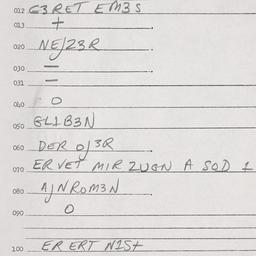 012 G3RET EM3S
013 +
020 NEJZ3R
030 —
031 —
040 O
050 GL1B3N
060 DER OJ3R
070 ERVET MIR ZUGN A SOD 1
080 AJNROM3N
090 O
100 ER ERT N1S+